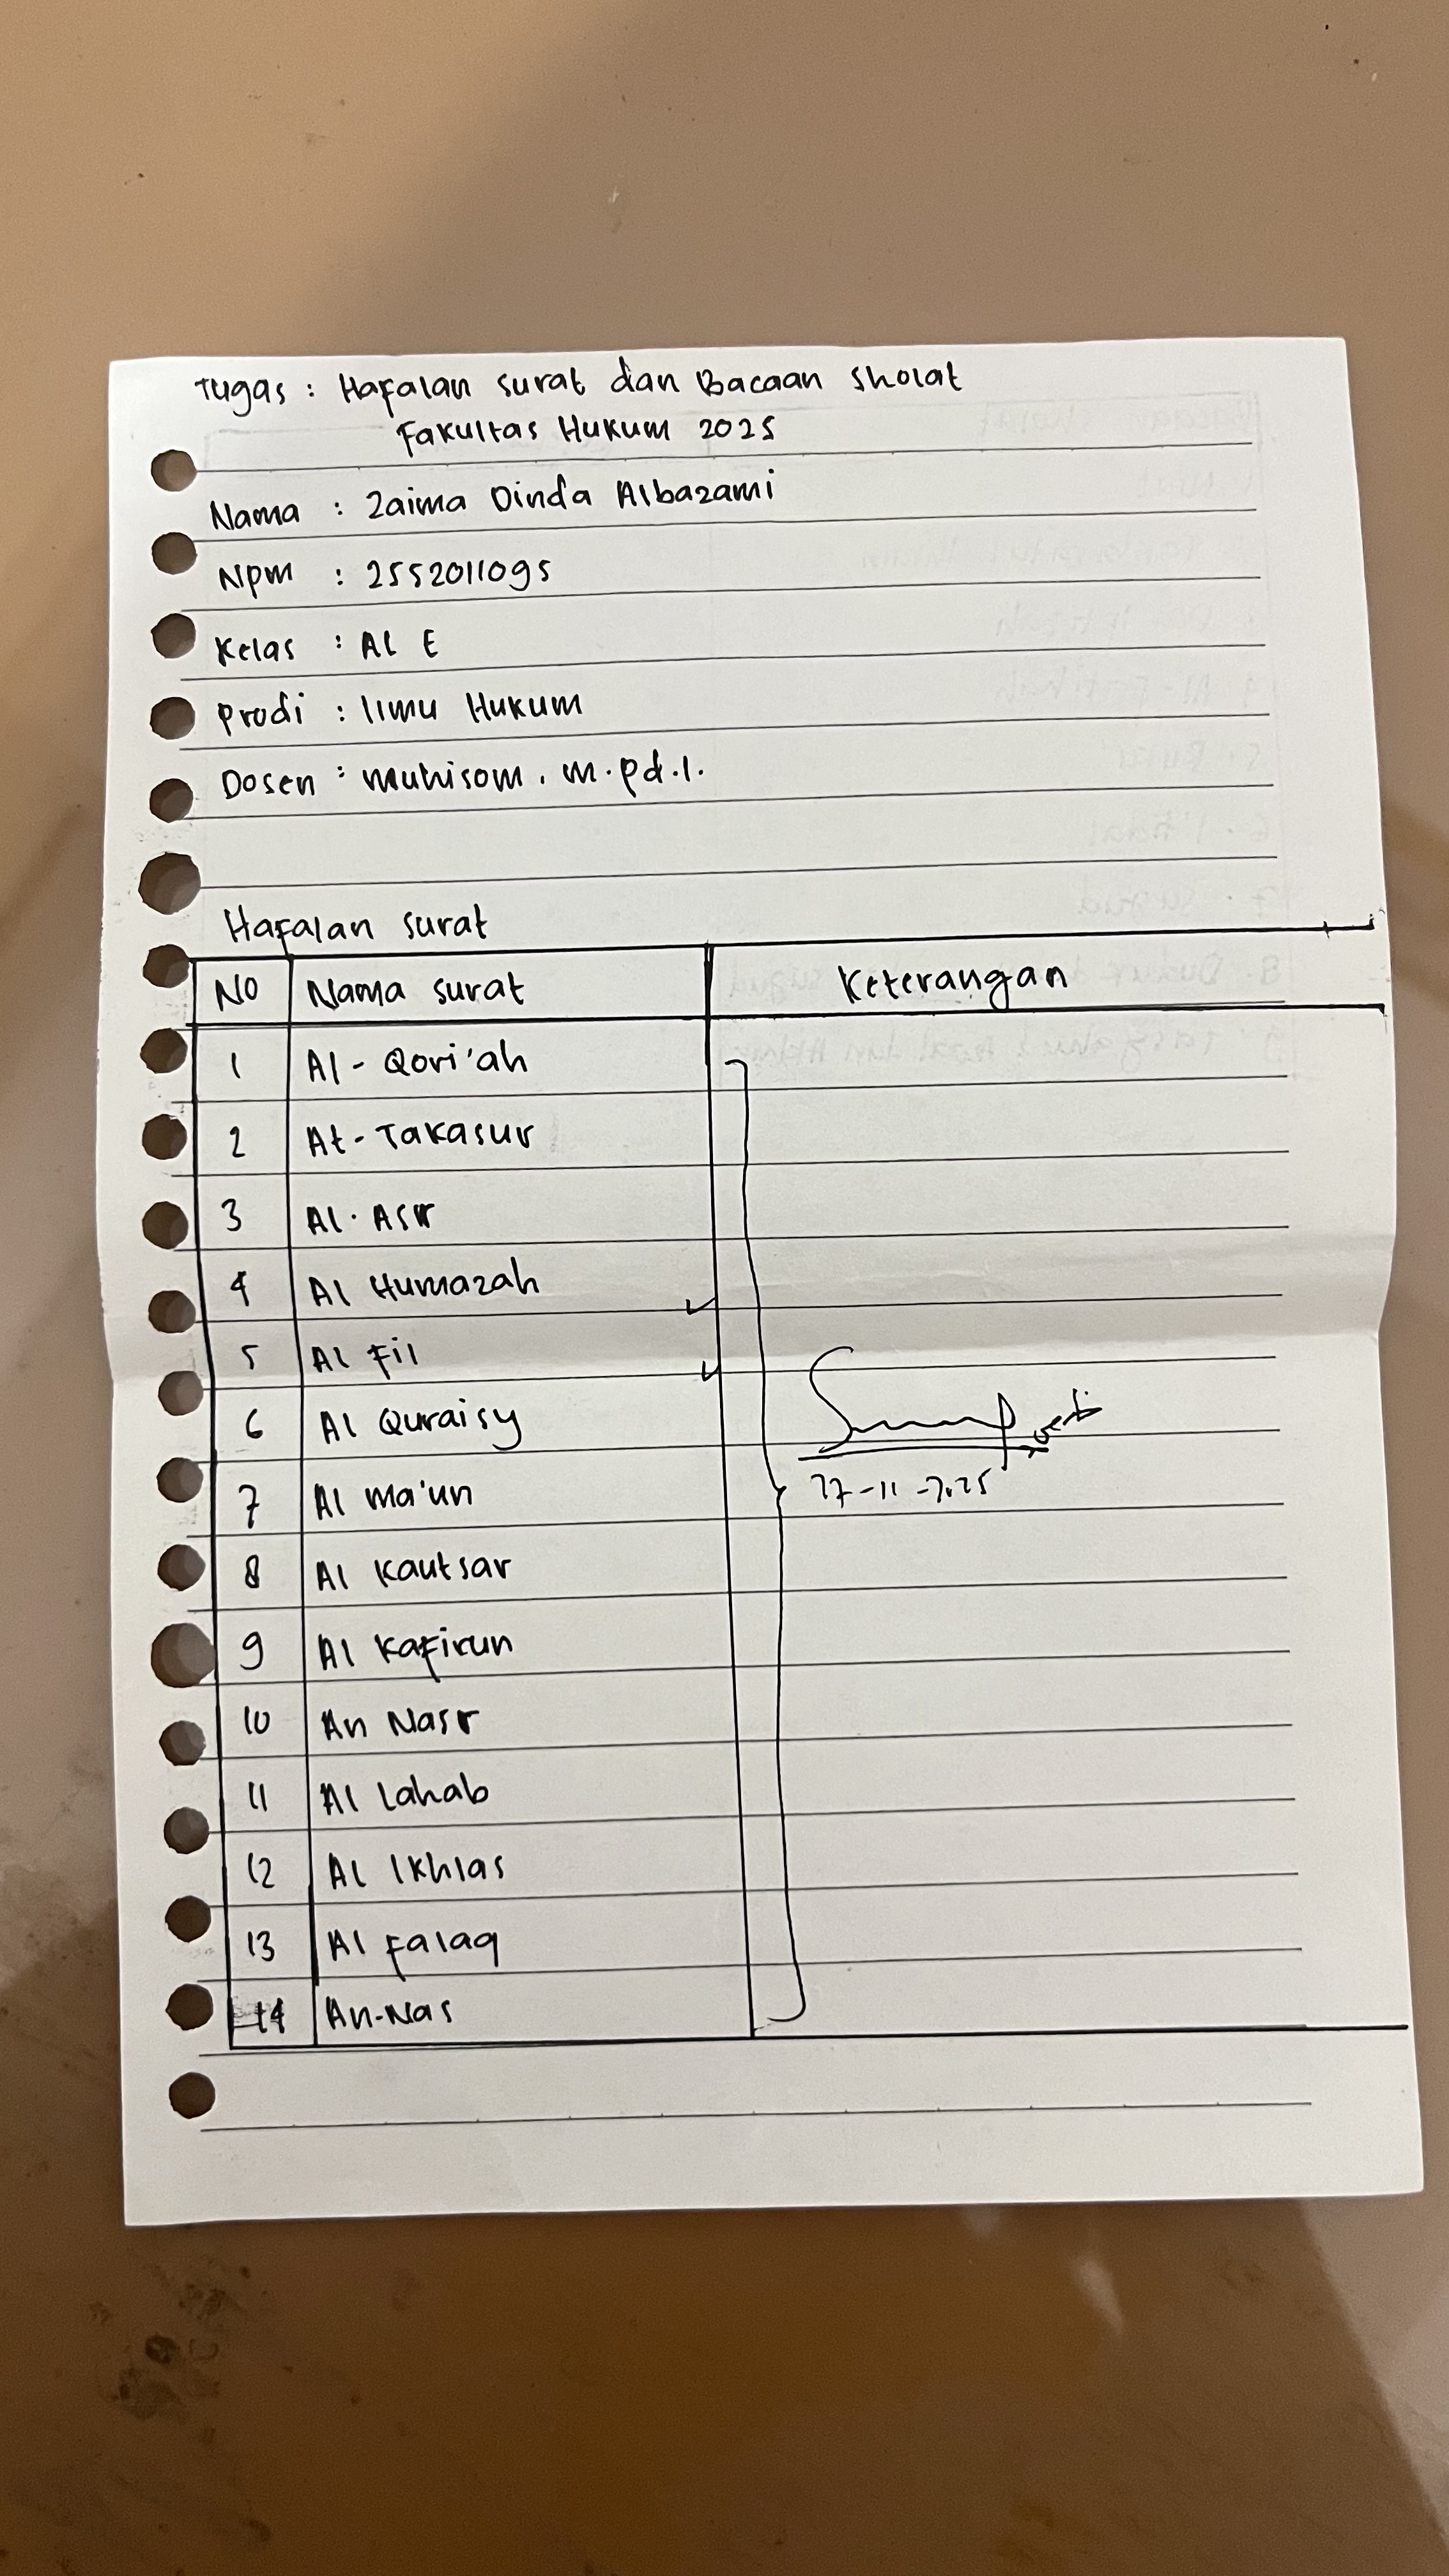 Tugas : Hafalan surat dan Bacaan Sholat
Fakultas Hukum 2025
Nama : Zaima Dinda Albazami
Npm : 2552011095
Kelas : AL E
Prodi : Ilmu Hukum
Dosen : Muhisom. M.pd.I.
Hafalan surat
No Nama surat Keterangan
1 Al-Qori'ah
2 At-Takasur
3 Al-Asr
4 Al Humazah
5 Al Fil
6 Al Quraisy
7 Al Ma'un
8 Al Kautsar
9 Al Kafirun
10 An Nasr
11 Al Lahab
12 Al Ikhlas
13 Al Falaq
14 An-Nas